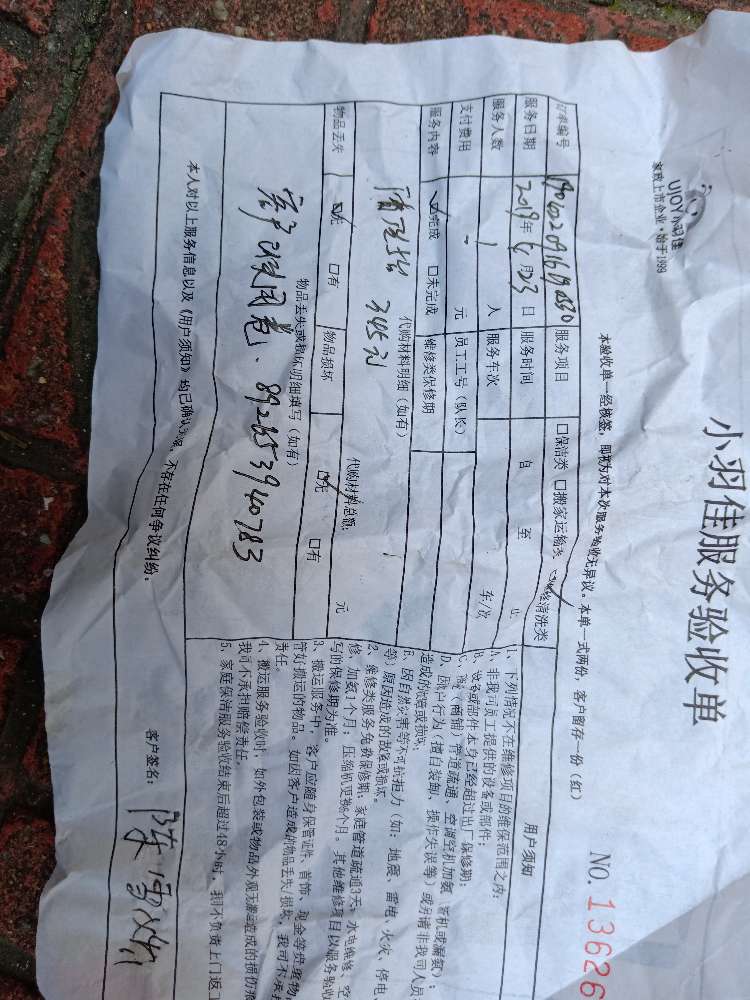 UJOY小羽佳
家政上市企业·始于1999
小羽佳服务验收单
NO. 13626
本验收单一经核签，即视为对本次服务验收无异议。本单一式两份，客户留存一份（红）
订单编号 服务项目 □保洁类 □搬家运输类 清洗类
服务日期 2019年 月23日 服务时间 自 至 止
服务人数 1 人 服务车次 车/次
支付费用 - 元 员工工号（队长）
服务内容 ☑完成 □未完成 维修类保修期
代购材料明细（如有）
345元
代购材料总额： 元
物品丢失 ☑无 □有 物品损坏 ☑无 □有
物品丢失或损坏明细填写（如有）
客户 892653940783
本人对以上服务信息以及《用户须知》均已确认 ，不存在任何争议纠纷。
客户签名： 陈
用户须知
1、下列情况不在维修项目的维保范围之内：
A、非我司员工提供的设备或部件；
B、设备或部件本身已经超过出厂保修期；
C、 （商铺）管道疏通、空调空机加氨（新机或漏氨）；
D、因用户行为（擅自装卸、操作失误等）或另请非我司人员
造成的故障或损坏；
E、因自然灾害等不可抗拒力（如：地震、雷电、火灾、停电、
等）原因造成的故障或损坏。
2、维修类服务免费保修期：家庭管道疏通3天；水电维修、空
修、加氨1个月；压缩机更换6个月。其他维修项目以服务验收
写的保修期为准。
3、搬运服务中，客户应随身保管证件、首饰、现金等贵重物
管好搬运的物品。如因客户造成的物品丢失/损坏，我司不承担
责任。
4、搬运服务验收时，如外包装或物品外观无 造成的损伤
我司不承担赔偿责任。
5、家庭保洁服务验收结束后超过48小时，我司不负责上门返工